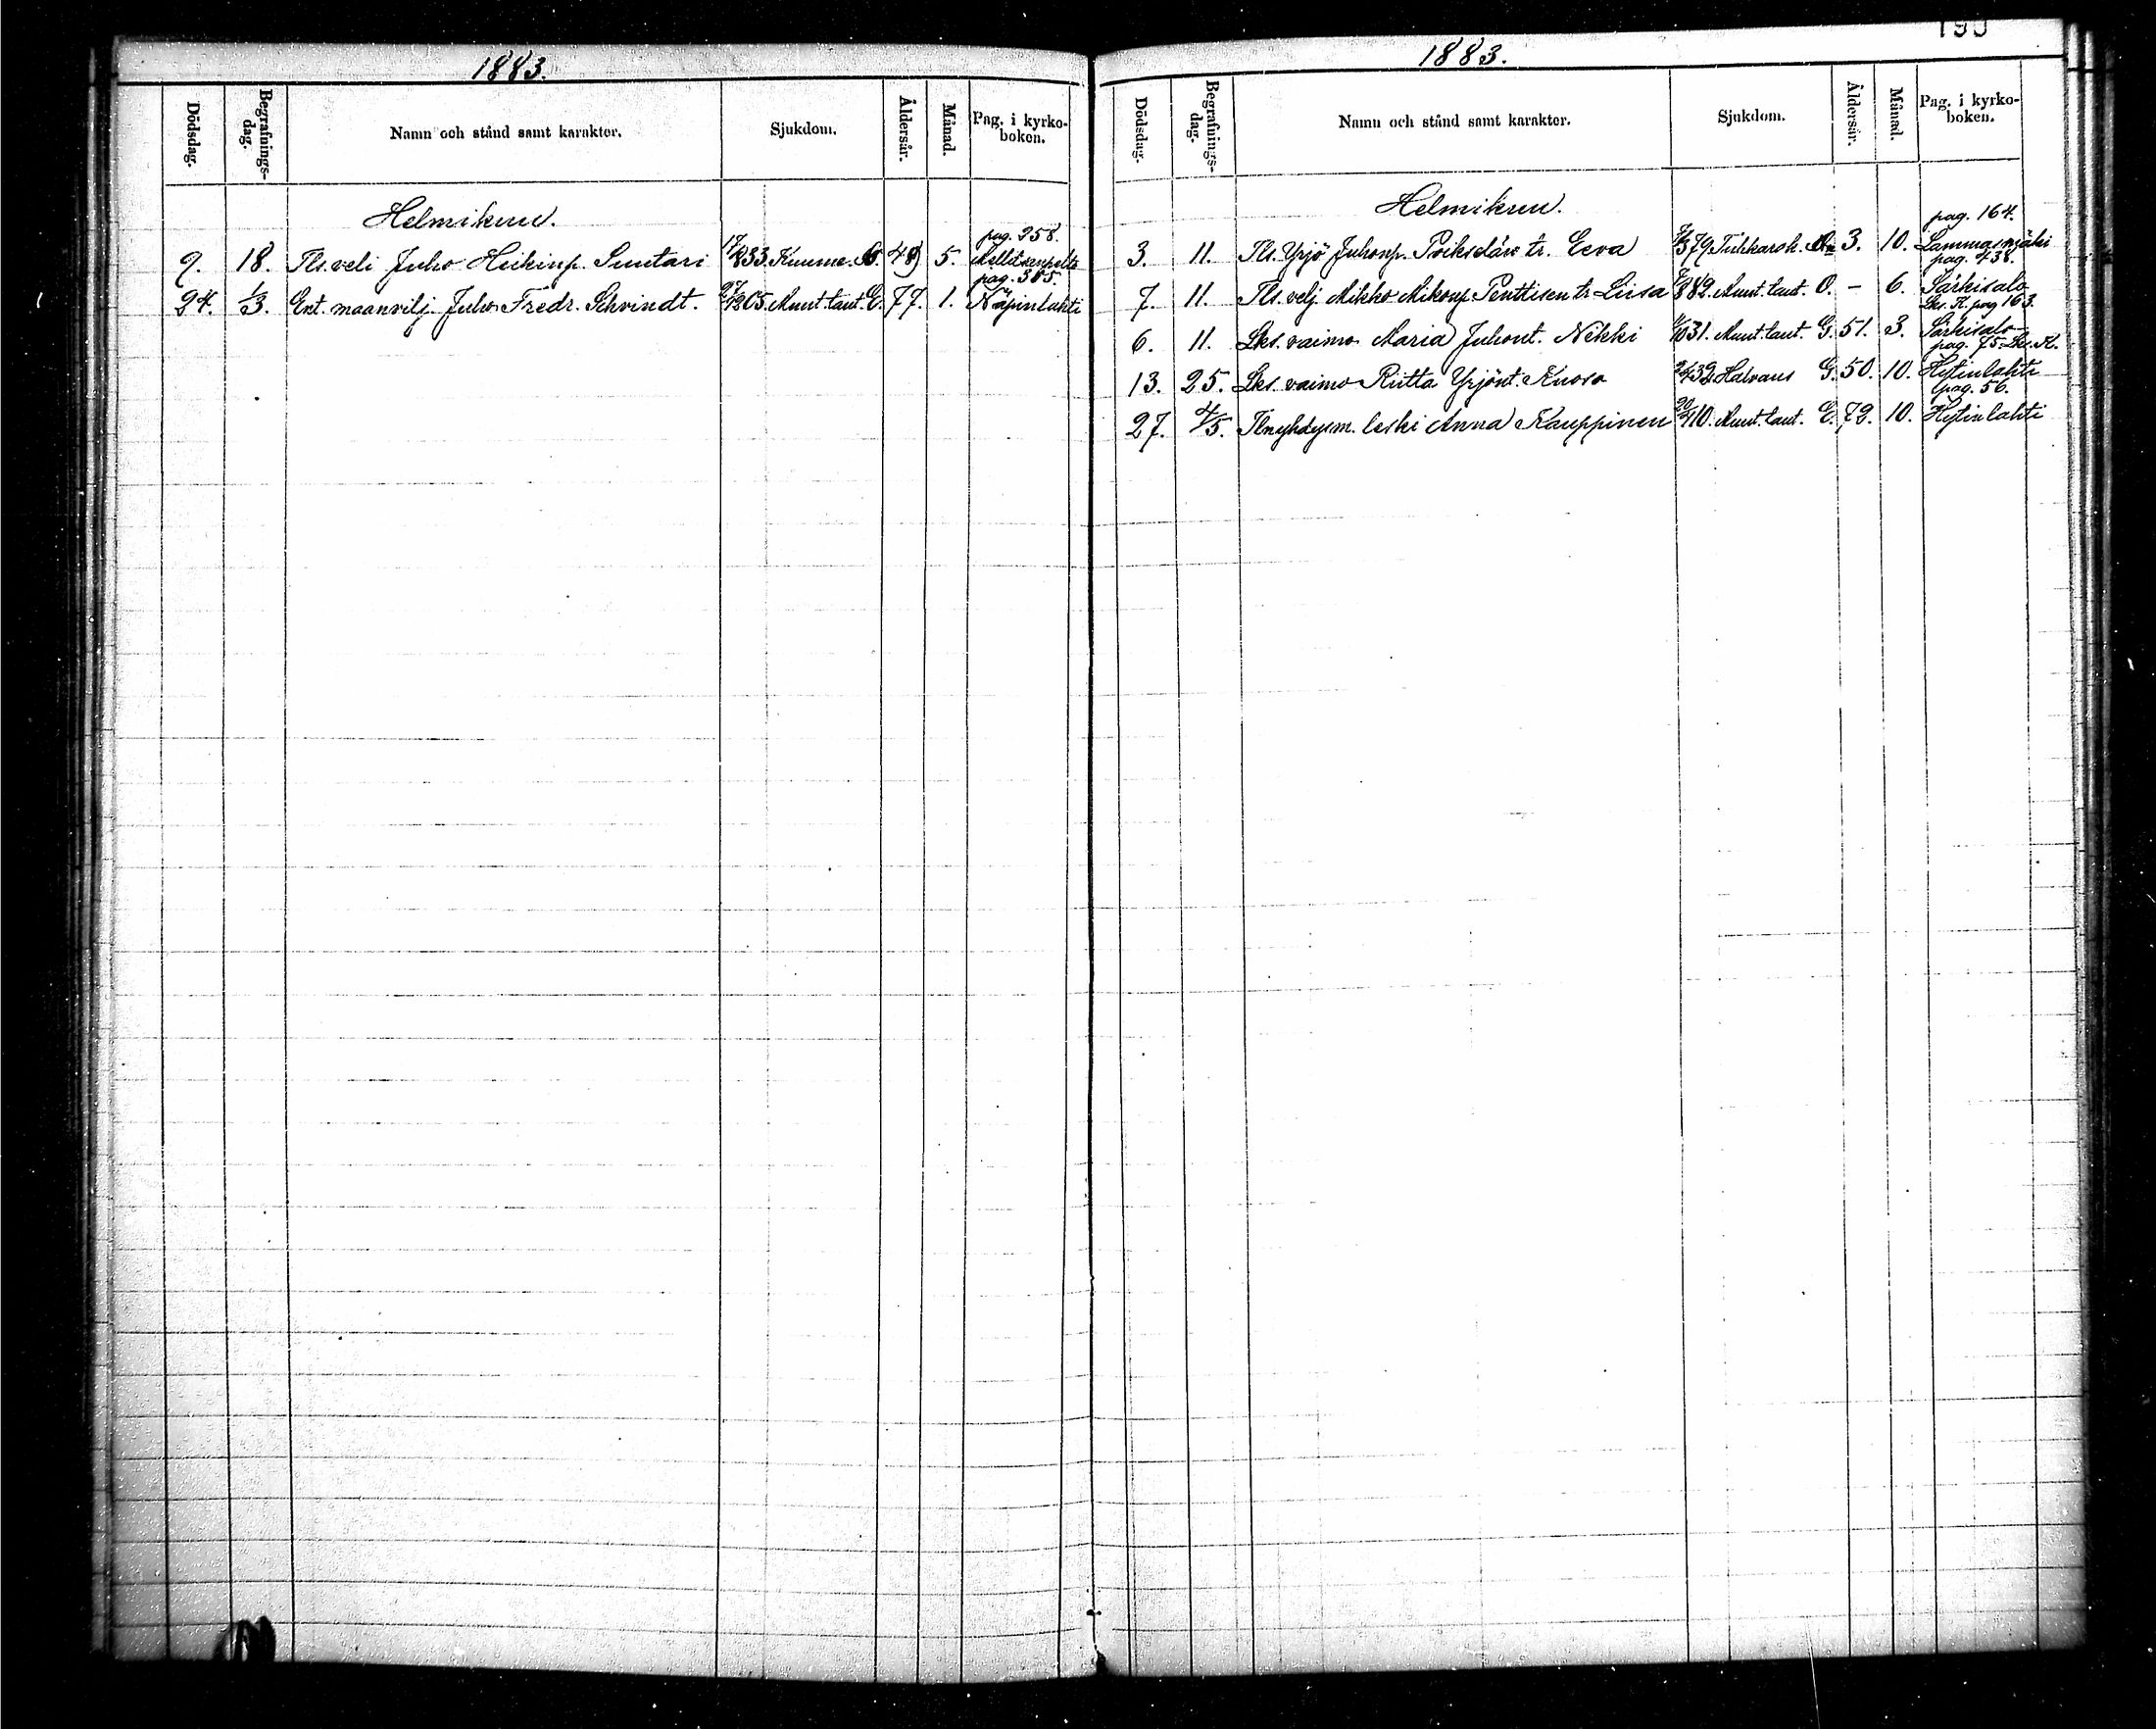 1883.
Dödsdag. Begrafnings-dag. Namn och stånd samt karakter. Sjukdom. Åldersår. Månad. Pag. i kyrko-boken.
Helmikuu.
pag. 258.
9. 18. Tls. veli Juho Heikinp. Suutari 17/8 33. Kuume. N. 49 5.
pag. 305.
24. 1/3. Ent. maanvilj. Juho Fredr. Schvindt. 27/12 05. Muut. taut. E. 77. 1. Näpinlahti
1883.
Dödsdag. Begrafnings-dag. Namn och stånd samt karakter. Sjukdom. Åldersår. Månad. Pag. i kyrko-boken.
Helmikuu.
pag. 164.
3. 11. Tls. Yrjö Juhonp. tr. Eeva 79. Tuhkarok. 3. 10. Lammasmäki
pag. 438.
7. 11. Tls. velj. Mikko Mikonp. Penttisen tr. Liisa 7/8 82. Muut. taut. O. – 6. Särkisalo
Lks. K. pag 163.
6. 11. Lks. vaimo Maria Juhont. Nikki 31. Muut. taut. G. 51. 3. Särkisalo
pag. 75 Lks. K.
13. 25. Lks. vaimo Riitta Yrjönt. Kuosa 32. Halvaus G. 50. 10. Hytinlahti
pag. 56.
27. 4/5. Tlnyhdysm. leski Anna Kauppinen 20/4 10. Muut. taut. E. 72. 10. Hytinlahti